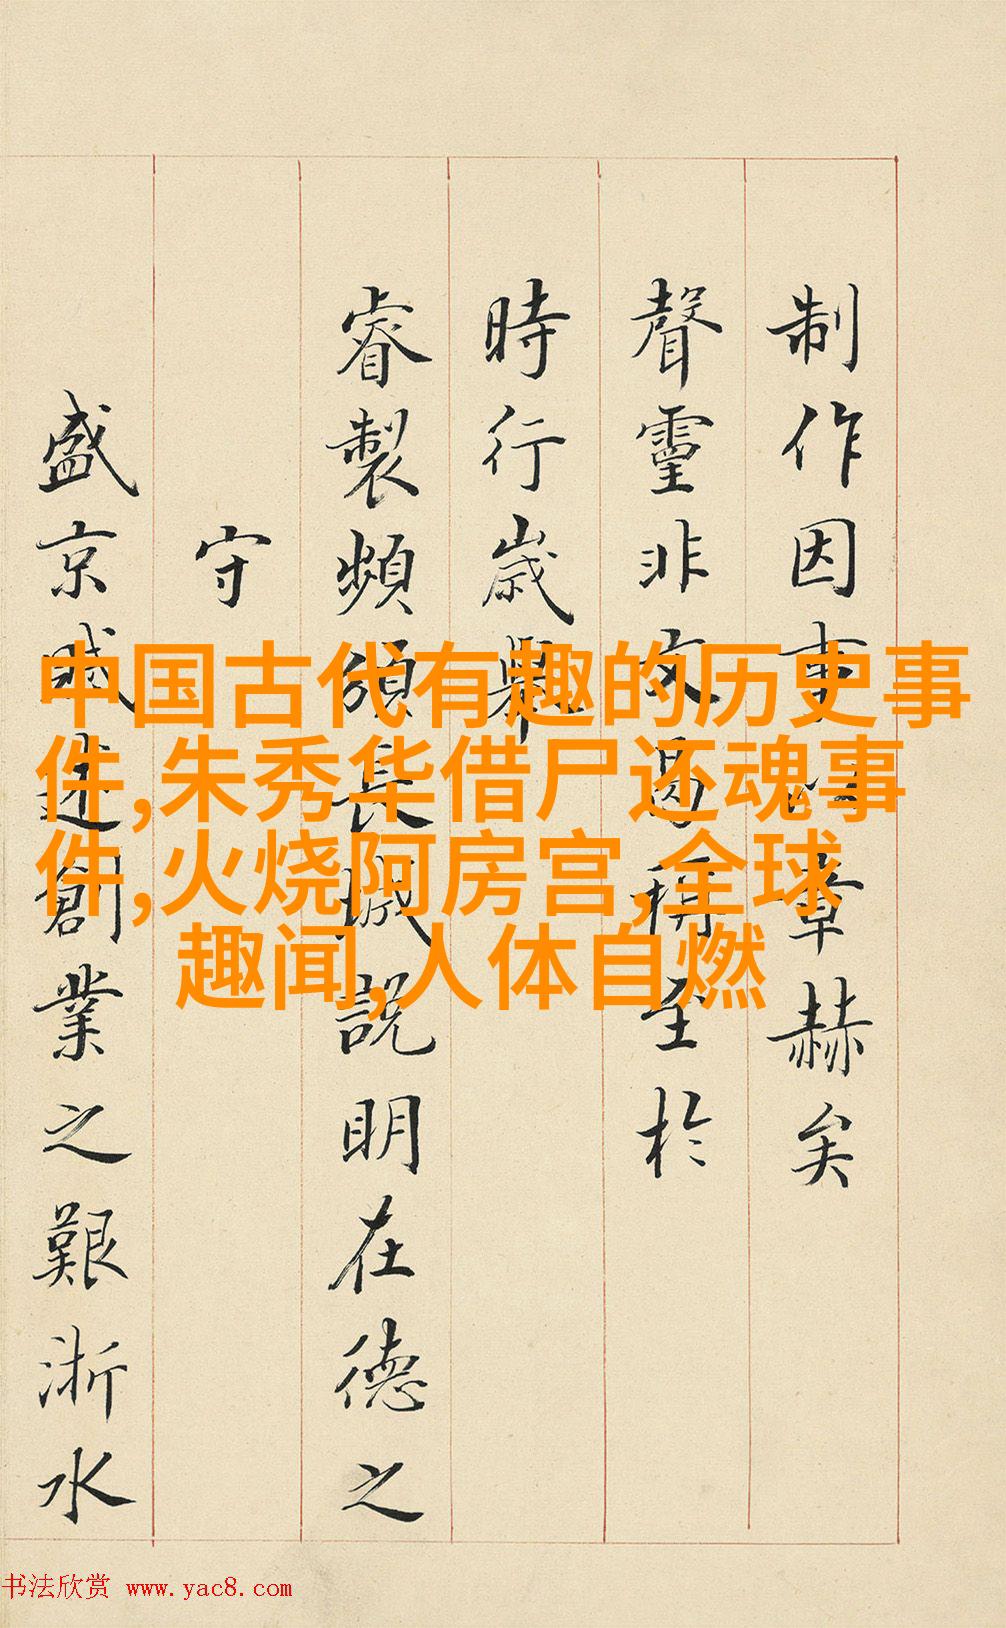 中国古代有趣的历史事
件,朱秀华借尸还魂事
件,火烧阿房宫,全球
趣闻,人体自燃
制作因事章赫矣
聲靈非文曷稱至於
時行歲舉
睿製頻頒長城說明在德之
守
盛京賦述創業之艱浙水
书法欣赏 www.yac8.com